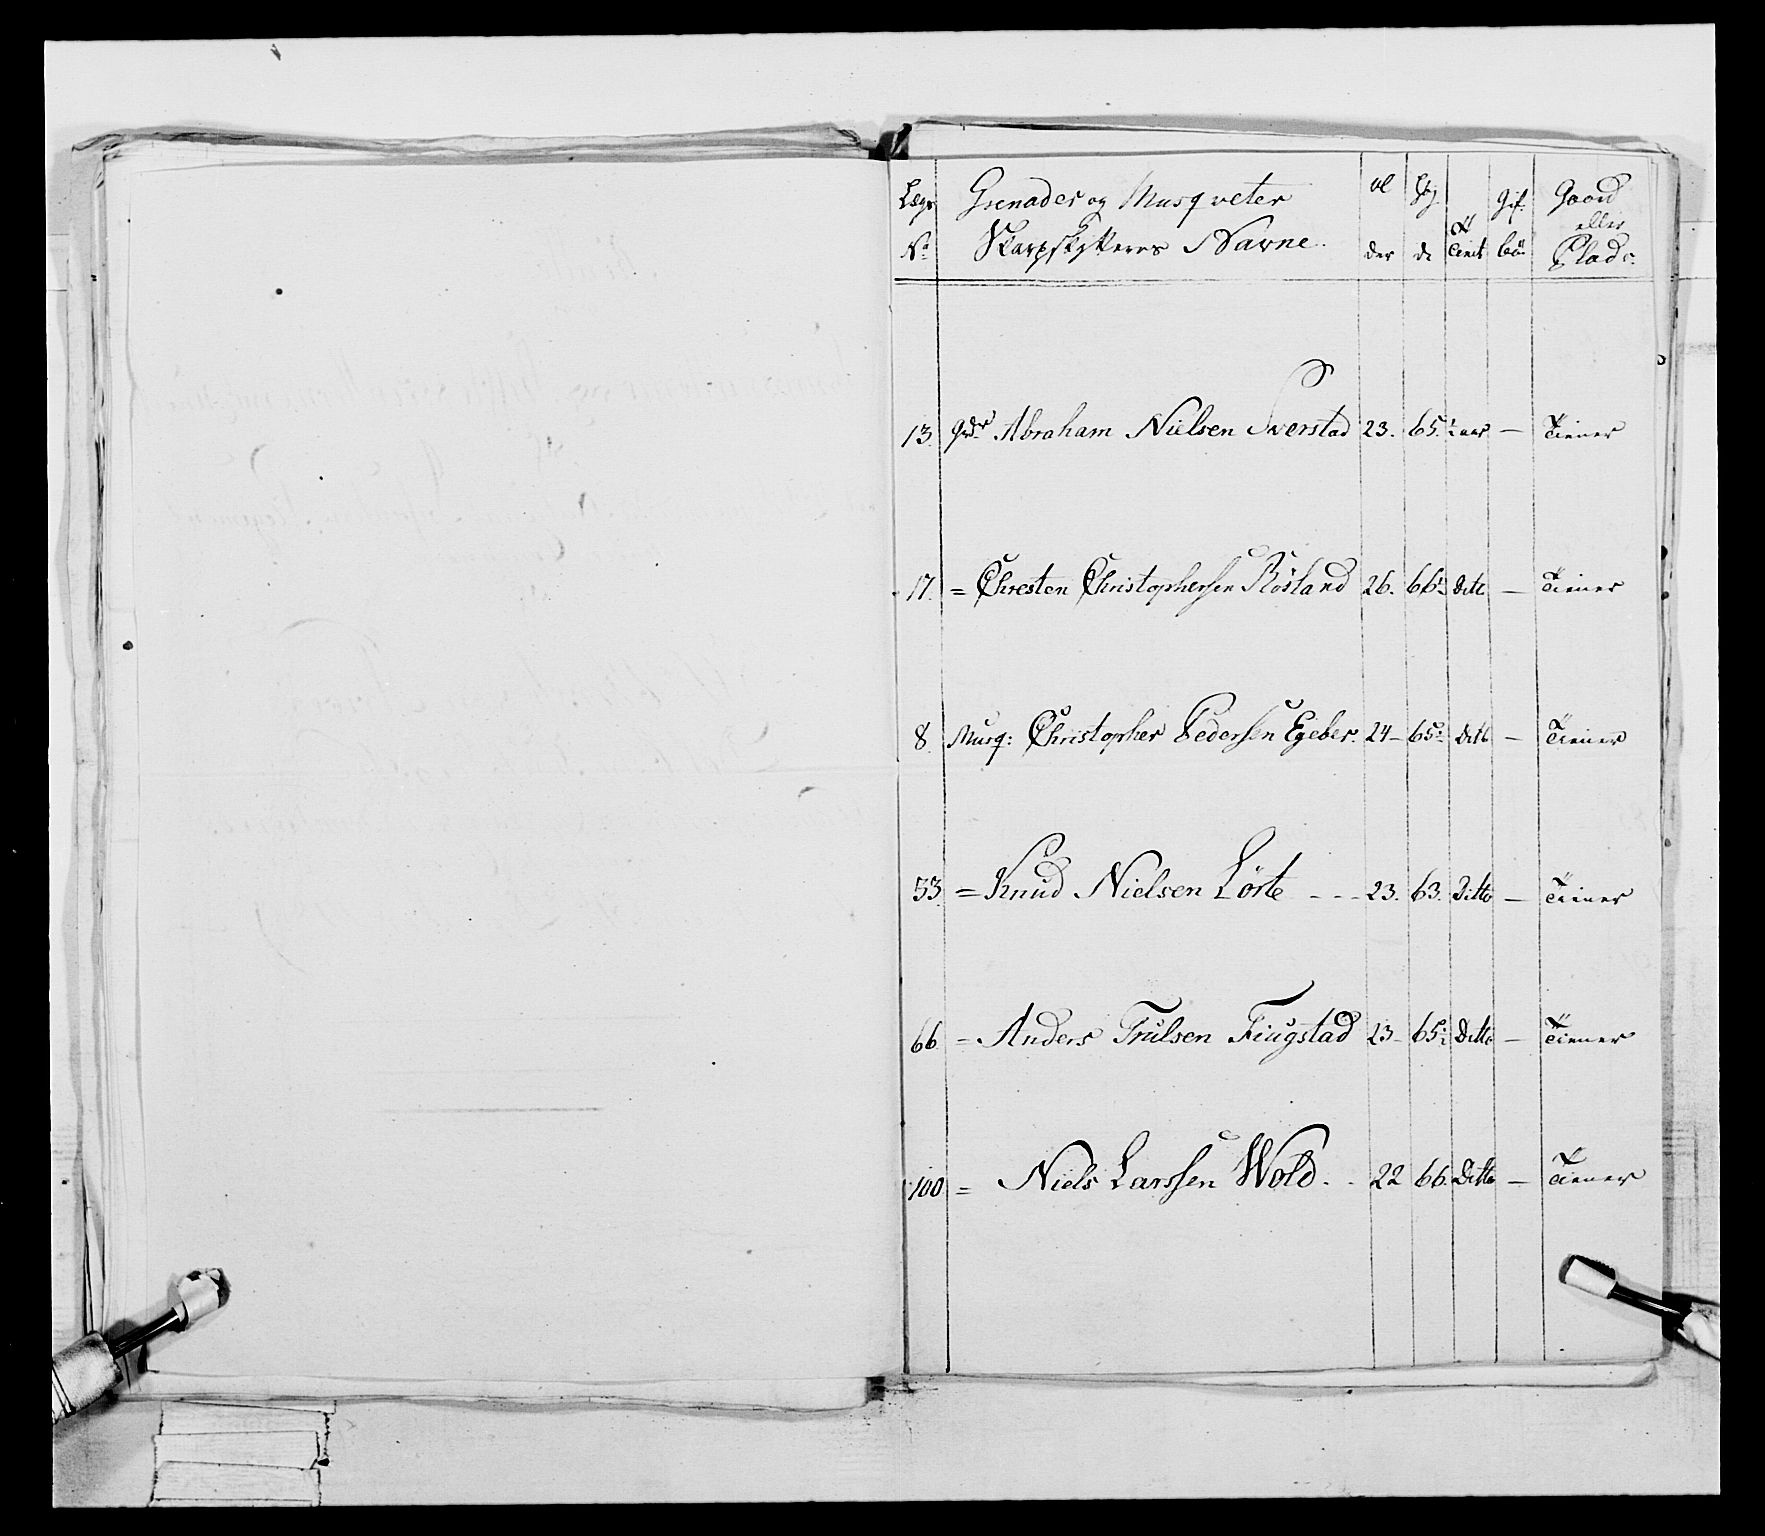 Lægs Grenader og Musqveter Al Høj Gif. Gaard
eller
No Skarpskytteres Navne. der de Tient bör Plads.
13. Grdr Abraham Nielsen Sverstad 23. 65. 1 aar — Tiener
17. = Chresten Christophersen Röstand 26. 66 Ditt — Tiener
8. Musq: Christopher Pedersen Egeber. 24 — 65 Ditto — Tiener
53. = Knud Nielsen Lörte - - - 23. 63. Ditto — Tiener
66 - Anders Trulsen Fiugstad 23 - 65 Ditto — Tiener
100 = Niels Larssen Wold. - 22 66. Ditto — Tiener